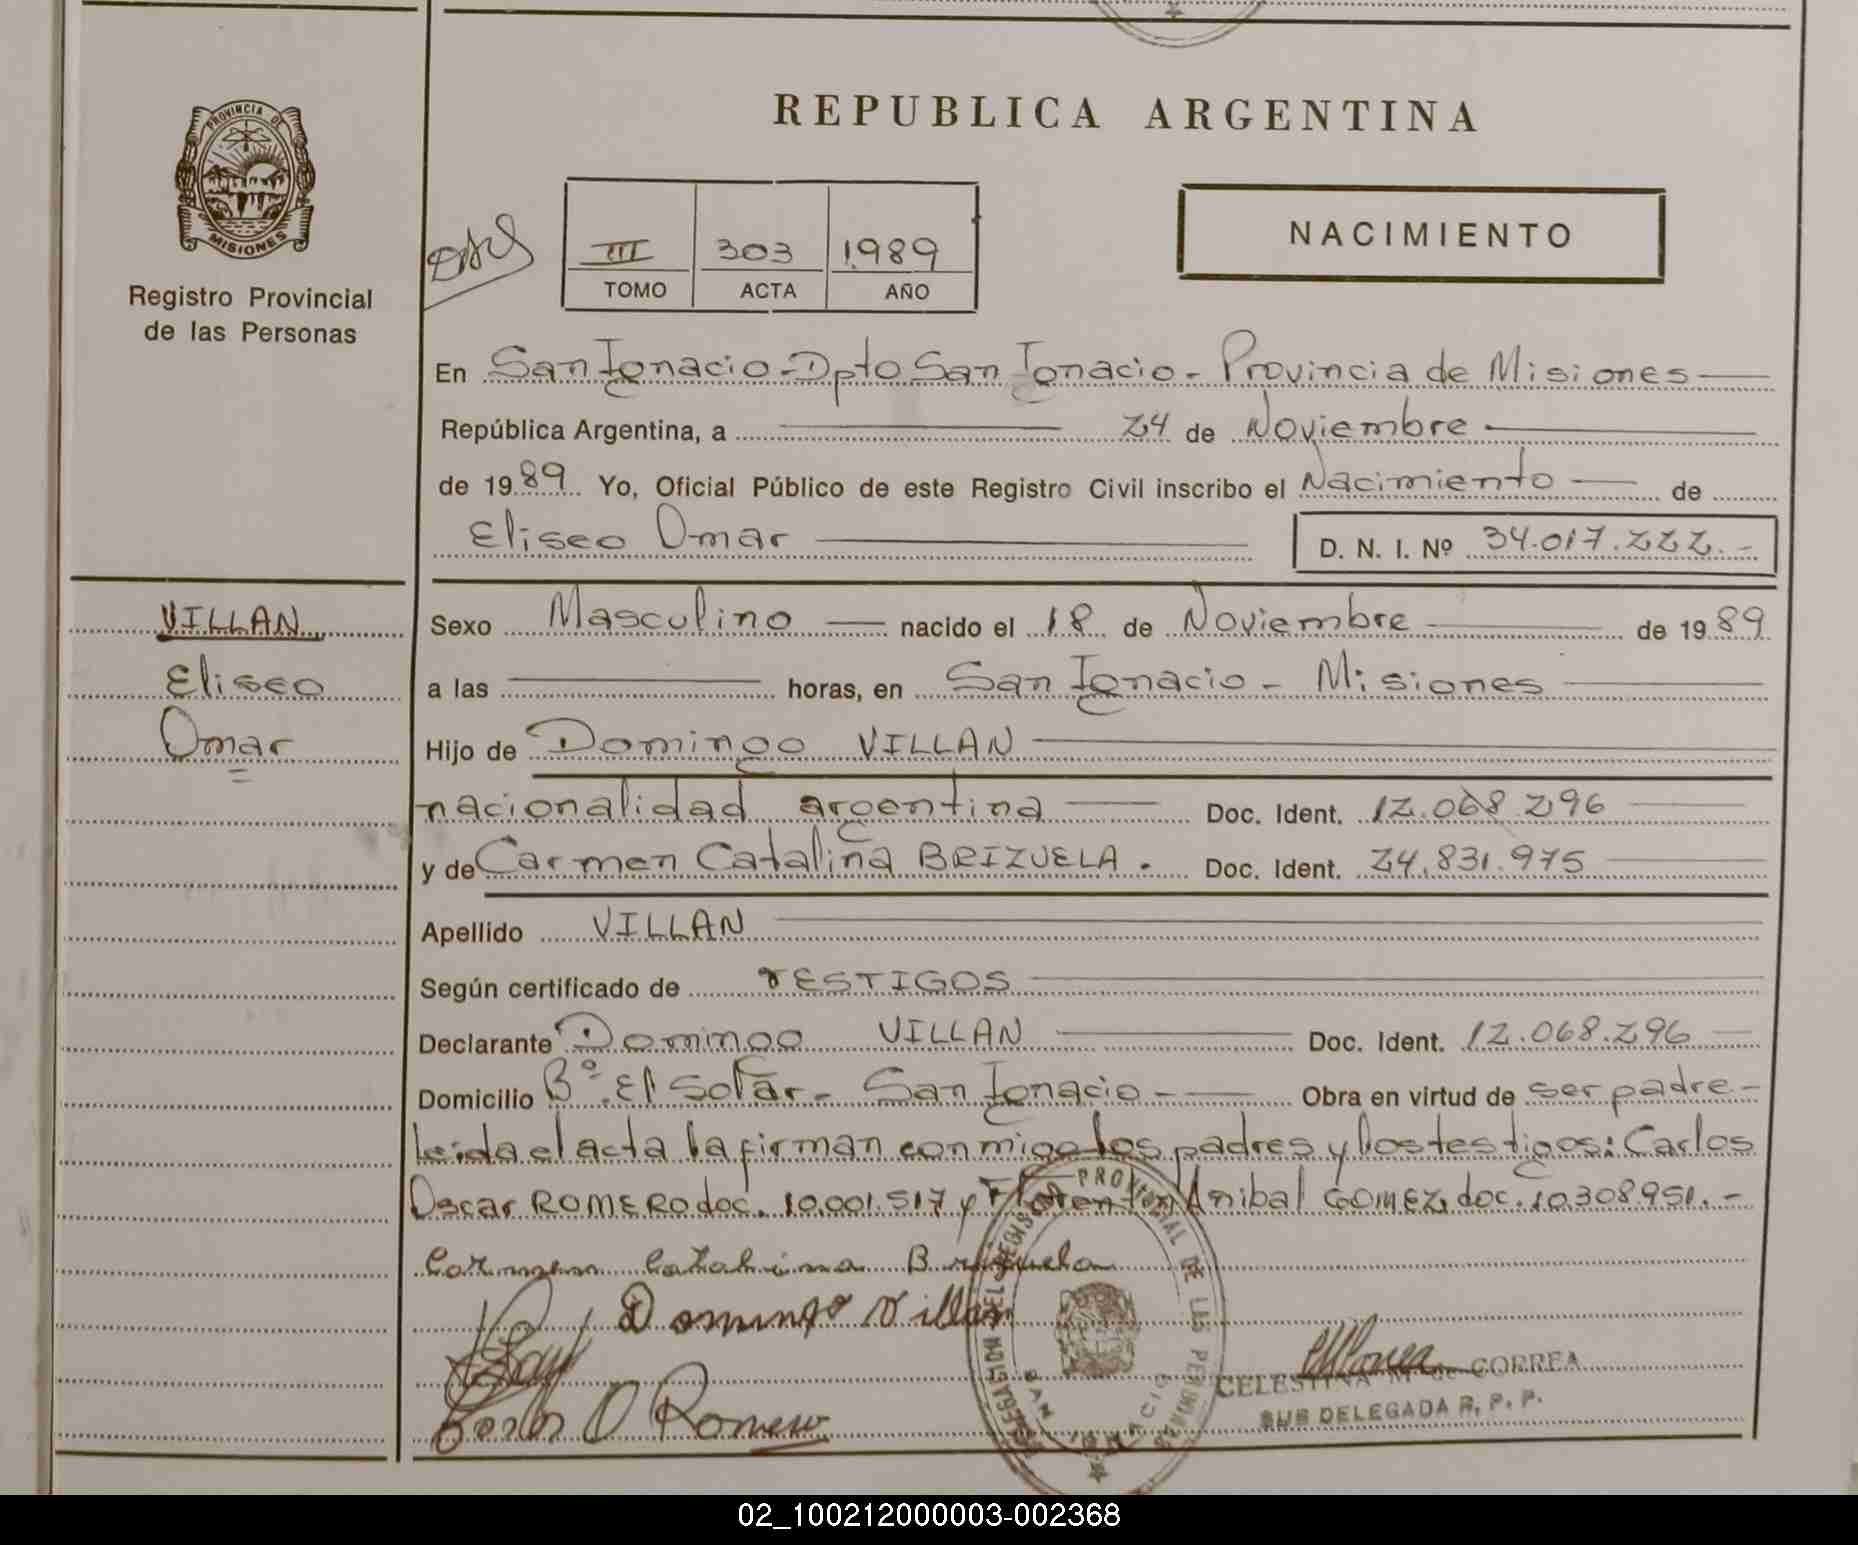 REPUBLICA ARGENTINA
PROVINCIA DE
MISIONES
Registro Provincial
de las Personas
III 303 1989
TOMO ACTA AÑO
NACIMIENTO
En San Ignacio - Dpto San Ignacio - Provincia de Misiones
República Argentina, a 24 de Noviembre
de 1989 Yo, Oficial Público de este Registro Civil inscribo el Nacimiento de
Eliseo Omar D. N. I. Nº 34.017.222.-
VILLAN
Eliseo
Omar
Sexo Masculino nacido el 18 de Noviembre de 1989
a las horas, en San Ignacio - Misiones
Hijo de Domingo VILLAN
nacionalidad argentina Doc. Ident. 12.068.296
y de Carmen Catalina BRIZUELA. Doc. Ident. 24.831.975
Apellido VILLAN
Según certificado de TESTIGOS
Declarante Domingo VILLAN Doc. Ident. 12.068.296
Domicilio Bº. El Solar - San Ignacio - Obra en virtud de ser padre -
leida el acta la firman conmigo los padres y los testigos: Carlos
Oscar ROMERO doc. 10.001.517 y Florentin Anibal GOMEZ, doc. 10.308.951.-
Carmen Catalina Brizuela
Domingo Villan
Carlos O Romero
CELESTINA M. de CORREA
SUB DELEGADA R. P. P.
DELEGACION DEL REGISTRO PROVINCIAL DE LAS PERSONAS
SAN IGNACIO
02_100212000003-002368